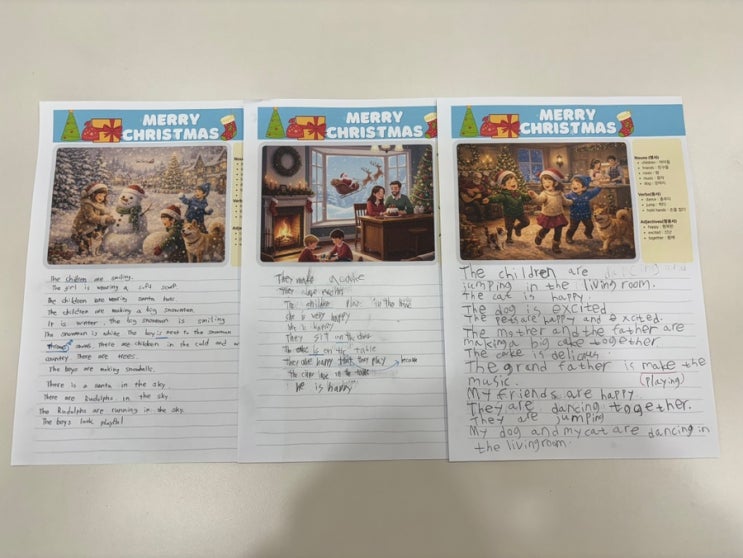 MERRY
CHRISTMAS
The children are smiling.
The girl is wearing a soft scarf.
The children are wearing santa hats.
The children are making a big snowman.
It is winter. the big snowman is smiling
The snowman is white. The boy is next to the snowman
there are children in the cold and
country. There are trees.
The boys are making snowballs.
There is a santa in the sky.
There are Rudolphs in the sky.
The Rudolphs are running in the sky.
The boys look playful
MERRY
CHRISTMAS
They make a cake
They
The children play in the
she is very happy
He is happy
They sit on the
The is on the table
They are happy that they play
The on the table
he is happy
MERRY
CHRISTMAS
Nouns (명사)
children : 아이들
friends : 친구들
music : 음악
dog : 강아지
Verbs(동사)
dance : 춤추다
jump : 뛰다
hold hands : 손을 잡다
Adjectives(형용사)
happy : 행복한
excited : 신난
together : 함께
The children are dancing and
jumping in the living room.
the cat is happy.
The dog is excited
The people happy and excited.
The mother and the father are
making a big cake together
The cake is delicious.
The grand father is make the
music. (playing)
My friends are happy.
They are dancing together.
They are jumping
My dog and my cat are dancing in
the livingroom.